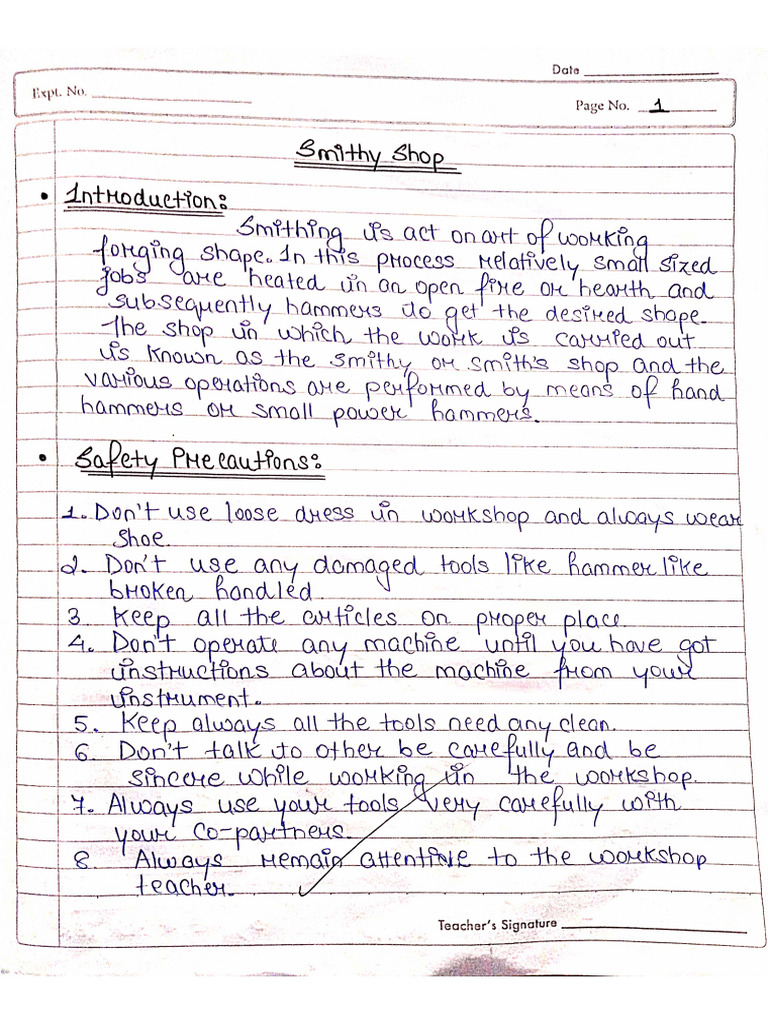 Date
Expt. No.
Page No. 1
Smithy Shop
• Introduction:
Smithing is act on art of working
forging shape. In this process relatively small sized
jobs are heated in an open fire or hearth and
subsequently hammers to get the desired shape.
The shop in which the work is carried out
is known as the smithy or smith's shop and the
various operations are performed by means of hand
hammers or small power hammers.
• Safety Precautions:
1. Don't use loose dress in workshop and always wear
shoe.
2. Don't use any damaged tools like hammer like
broken handled.
3. Keep all the articles on proper place.
4. Don't operate any machine until you have got
instructions about the machine from your
instrument.
5. Keep always all the tools need any clean.
6. Don't talk to other be carefully and be
sincere while working in the workshop.
7. Always use your tools very carefully with
your co-partners.
8. Always remain attentive to the workshop
teacher.
Teacher's Signature